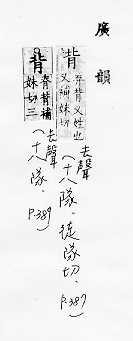 廣韻
背 弃背又姓也
又補妹切
去聲(十八隊,徒隊切,P.387)
背 脊背補
妹切三
去聲(十八隊,P.389)